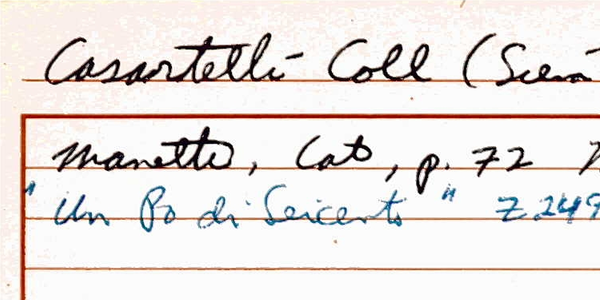 Casartelli Coll (Siena
Manetti, Cat, p. 72
"Un Po di Seicento" Z249